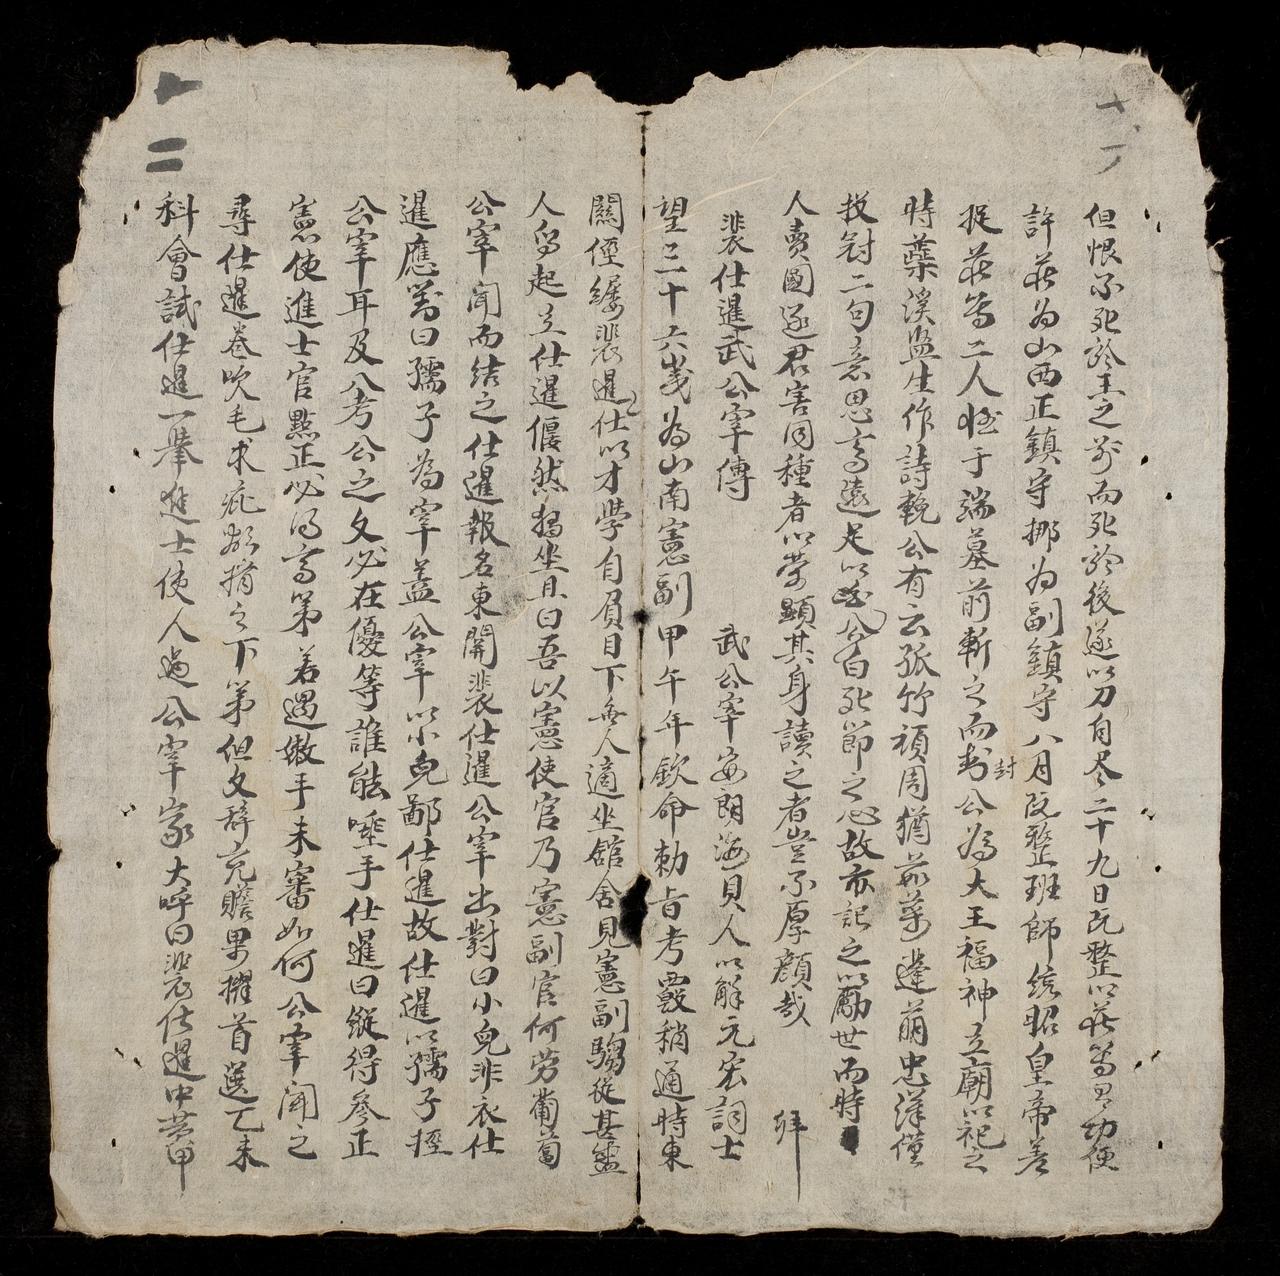 但恨不死於王之前而死於後遂以刀自尽二十九日阮整以莊等有功便
許莊為山西正鎮守挪為副鎮守八月阮整班師統昭皇帝差
捉莊等二人怪于端墓前斬之而封公為大王福神立廟以祀之
封
時蘗溪監生作詩輓公有云孤竹頑周猶茹蒂逢萠忠漢僅
投冠二句意思高遠足以公白死節之心故亦記之以勵世而時
人賣國逐君害同種者以榮顯其身讀之者豈不厚顔哉
裴仕暹武公宰傳 武公宰安朗海貝人以解元宏詞士
望三十六歲為山南憲副甲午年欽命勅旨考覈稍通時東
關經縷裴暹仕以才學自眉目下無人適坐舘舍見憲副騶從甚盛
人皆起立仕暹偃然獨坐且曰吾以憲使官乃憲副官何勞葡萄
公宰聞而結之仕暹報名東關裴仕暹公宰出對曰小兒非衣仕
暹應對曰孺子為宰盖公宰以小兒鄙仕暹故仕暹以孺子輕
公宰耳及入考公之文必在優等誰能唾手仕暹曰縱得參正
憲使進士官點正必得高第若遇嫩手未審如何公宰聞之
尋仕暹卷吹毛求疵摘之下第但文辞充贍果擢首選乙未
科會試仕暹一舉進士使人過公宰家大呼曰裴仕暹中黄甲
十二